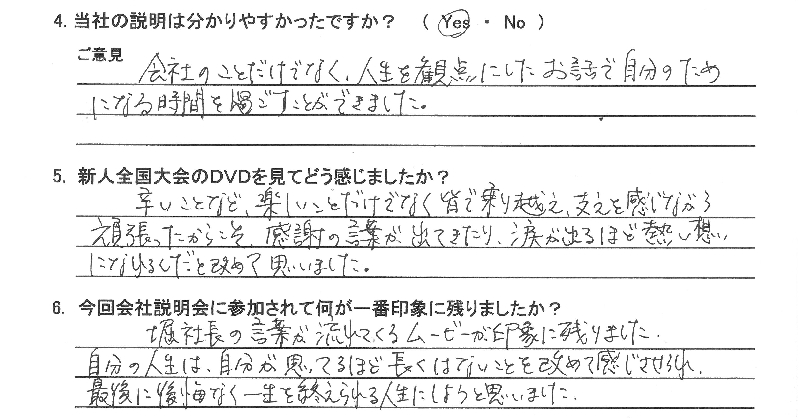 4. 当社の説明は分かりやすかったですか？ （ Yes ・ No ）
ご意見
会社のことだけでなく、人生を観点にしたお話で自分のため
になる時間を過ごすことができました。
5. 新人全国大会のDVDを見てどう感じましたか？
辛いことなど、楽しいことだけでなく皆で乗り越え、支えを感じながら
頑張ったからこそ、感謝の言葉が出てきたり、涙が出るほど熱い想い
になれるんだと改めて思いました。
6. 今回会社説明会に参加されて何が一番印象に残りましたか？
堀社長の言葉が流れてくるムービーが印象に残りました.
自分の人生は、自分が思ってるほど長くはないことを改めて感じさせられ、
最後に後悔なく一生を終えられる人生にしようと思いました.